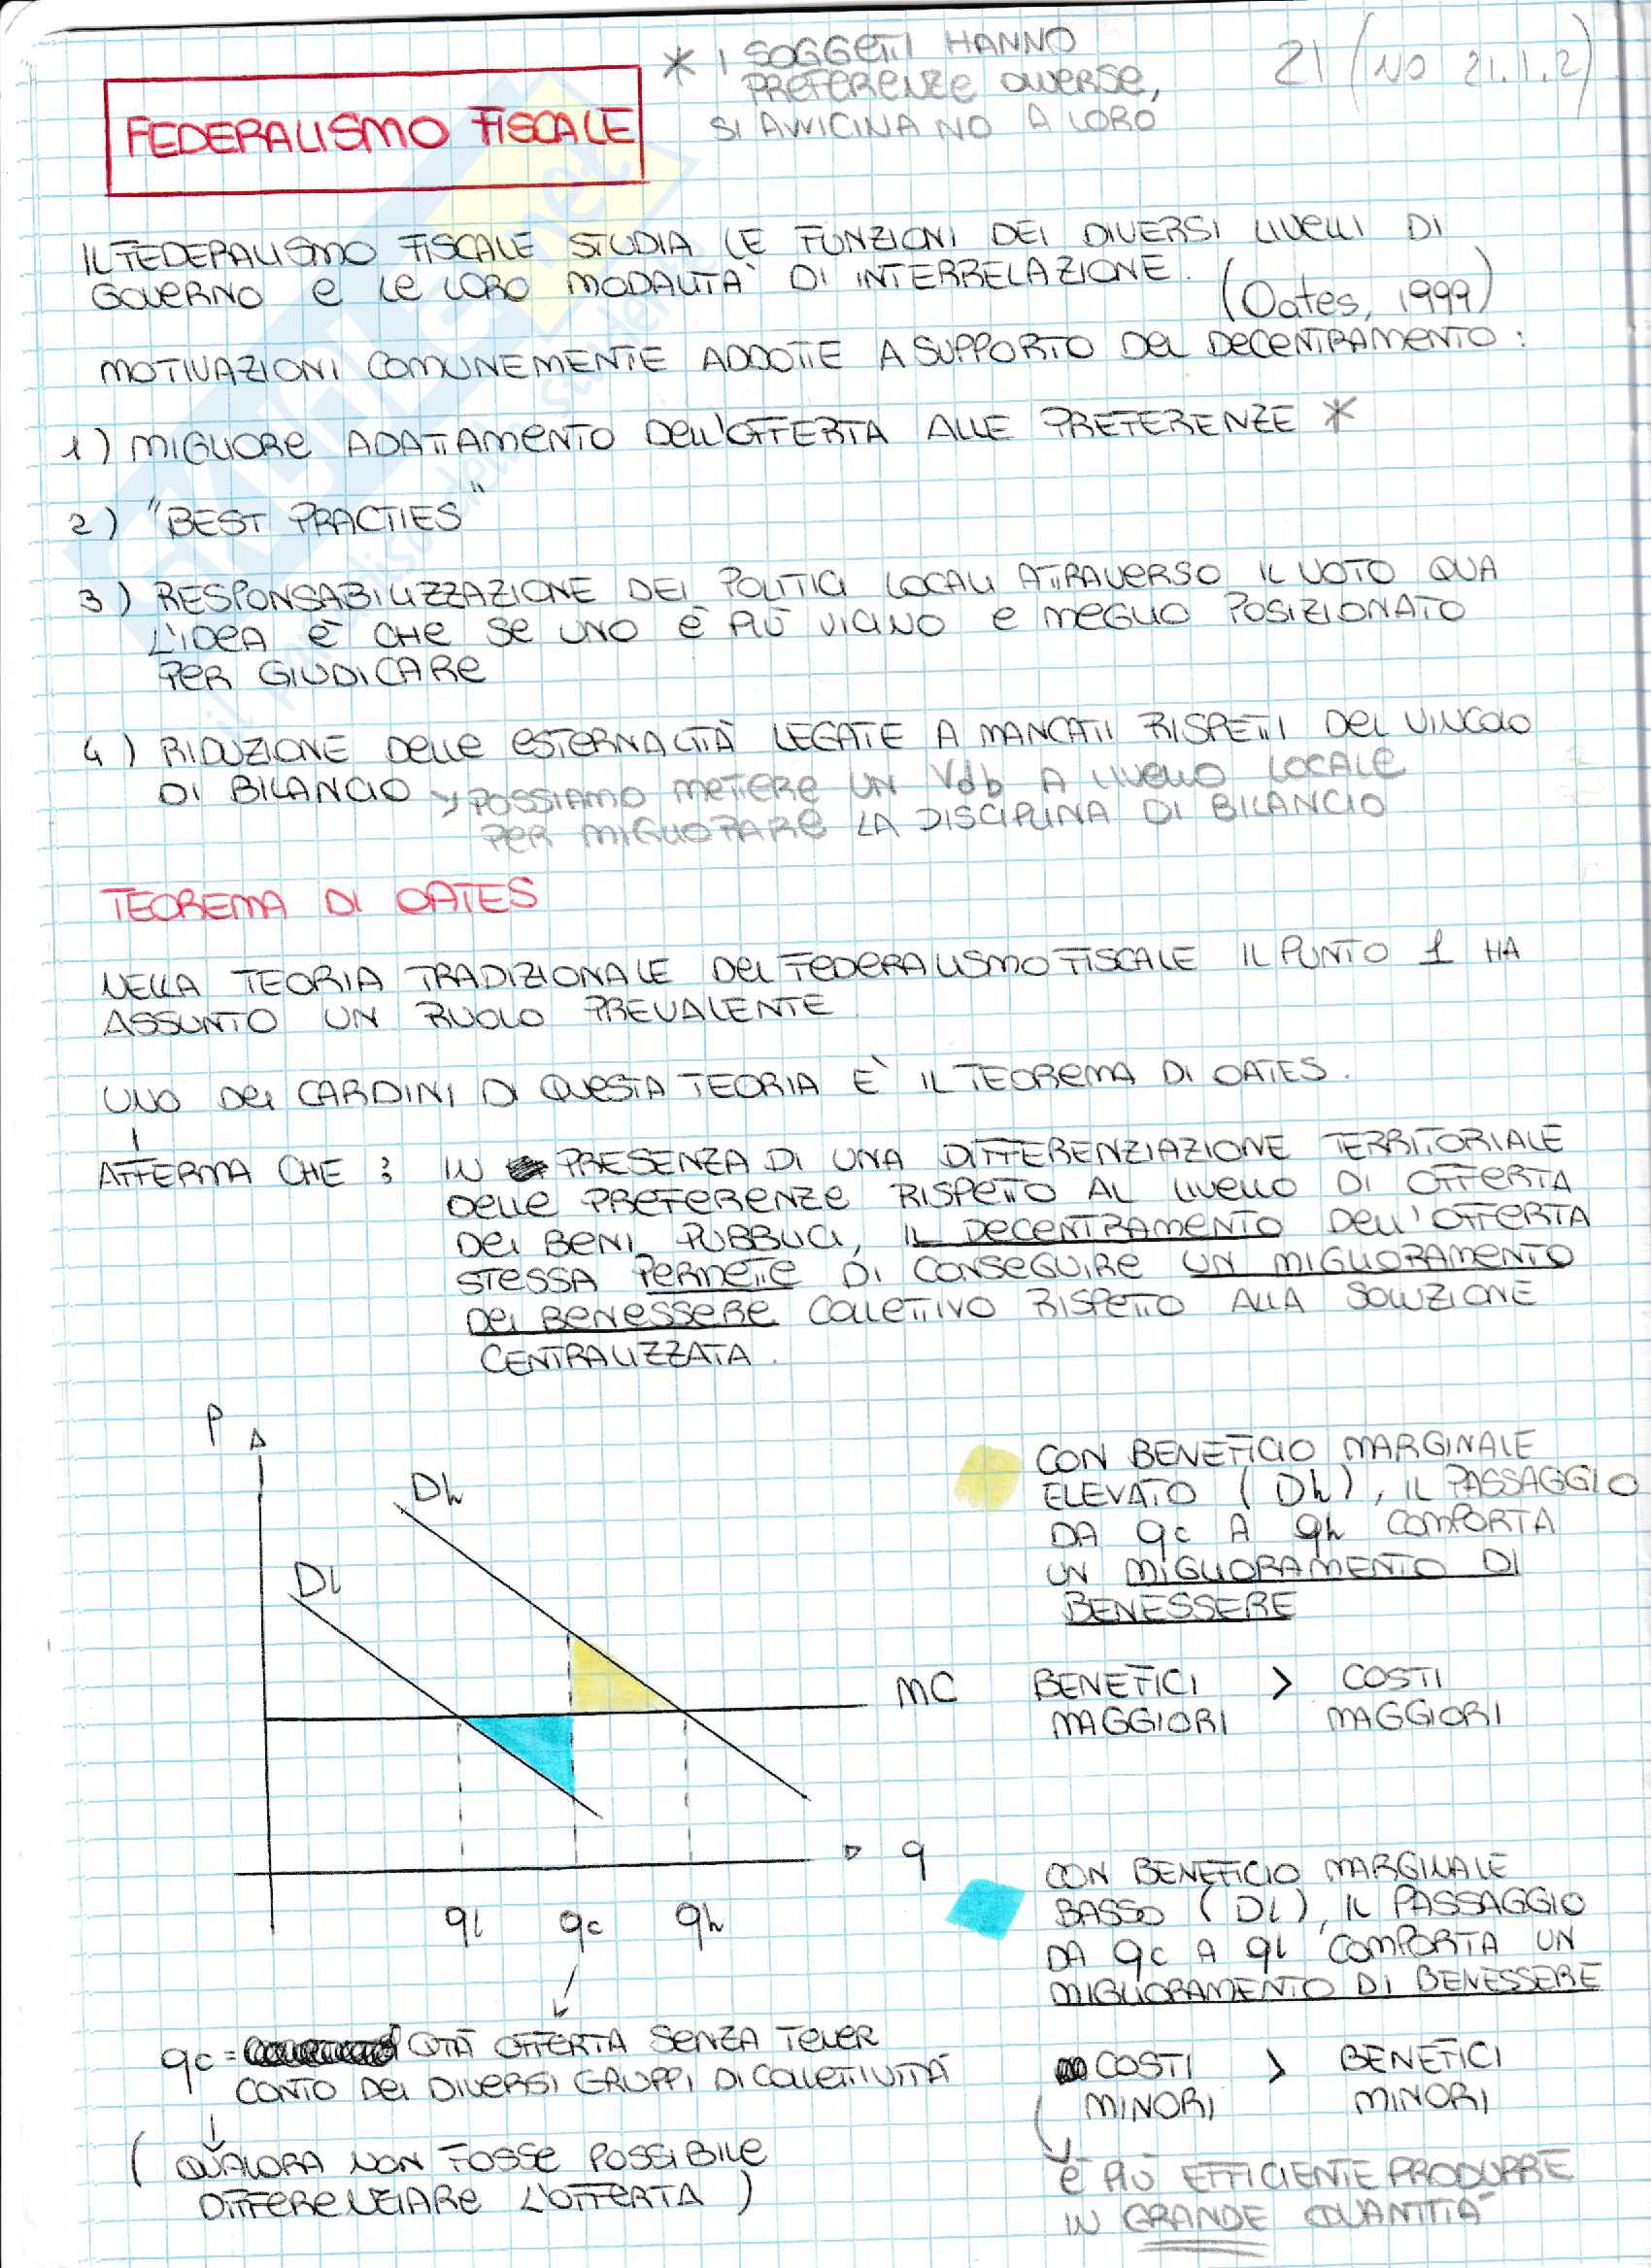 * I SOGGETTI HANNO
PREFERENZE DIVERSE,
SI AVVICINANO A LORO
21 (NO 21.1.2)
FEDERALISMO FISCALE
IL FEDERALISMO FISCALE STUDIA LE FUNZIONI DEI DIVERSI LIVELLI DI
GOVERNO E LE LORO MODALITA' DI INTERRELAZIONE.
(Oates, 1999)
MOTIVAZIONI COMUNEMENTE ADDOTTE A SUPPORTO DEL DECENTRAMENTO :
1) MIGLIORE ADATTAMENTO DELL'OFFERTA ALLE PREFERENZE *
2) "BEST PRACTIES"
3) RESPONSABILIZZAZIONE DEI POLITICI LOCALI ATTRAVERSO IL VOTO QUA
L'IDEA È CHE SE UNO È PIÙ VICINO E MEGLIO POSIZIONATO
PER GIUDICARE
4) RIDUZIONE DELLE ESTERNALITÀ LEGATE A MANCATI RISPETTI DEL VINCOLO
DI BILANCIO → POSSIAMO METTERE UN Vdb A LIVELLO LOCALE
PER MIGLIORARE LA DISCIPLINA DI BILANCIO
TEOREMA DI OATES
NELLA TEORIA TRADIZIONALE DEL FEDERALISMO FISCALE IL PUNTO 1 HA
ASSUNTO UN RUOLO PREVALENTE
UNO DEI CARDINI DI QUESTA TEORIA E' IL TEOREMA DI OATES.
AFFERMA CHE : IN PRESENZA DI UNA DIFFERENZIAZIONE TERRITORIALE
DELLE PREFERENZE RISPETTO AL LIVELLO DI OFFERTA
DEI BENI PUBBLICI, IL DECENTRAMENTO DELL'OFFERTA
STESSA PERMETTE DI CONSEGUIRE UN MIGLIORAMENTO
DEL BENESSERE COLLETTIVO RISPETTO ALLA SOLUZIONE
CENTRALIZZATA.
P
Dh
Dl
MC
q
ql qc qh
CON BENEFICIO MARGINALE
ELEVATO (Dh), IL PASSAGGIO
DA qc A qh COMPORTA
UN MIGLIORAMENTO DI
BENESSERE
BENEFICI > COSTI
MAGGIORI MAGGIORI
CON BENEFICIO MARGINALE
BASSO (Dl), IL PASSAGGIO
DA qc A ql COMPORTA UN
MIGLIORAMENTO DI BENESSERE
COSTI > BENEFICI
MINORI MINORI
È PIÙ EFFICIENTE PRODURRE
IN GRANDE QUANTITÀ
qc = QTÀ OFFERTA SENZA TENER
CONTO DEI DIVERSI GRUPPI DI COLLETTIVITÀ
( QUALORA NON FOSSE POSSIBILE
DIFFERENZIARE L'OFFERTA )